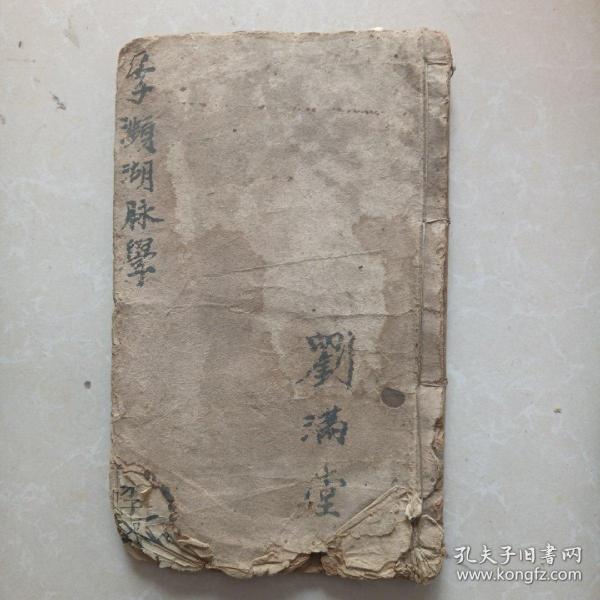 李瀕湖脉學
劉滿堂
孔夫子旧書网
www.kongfz.com